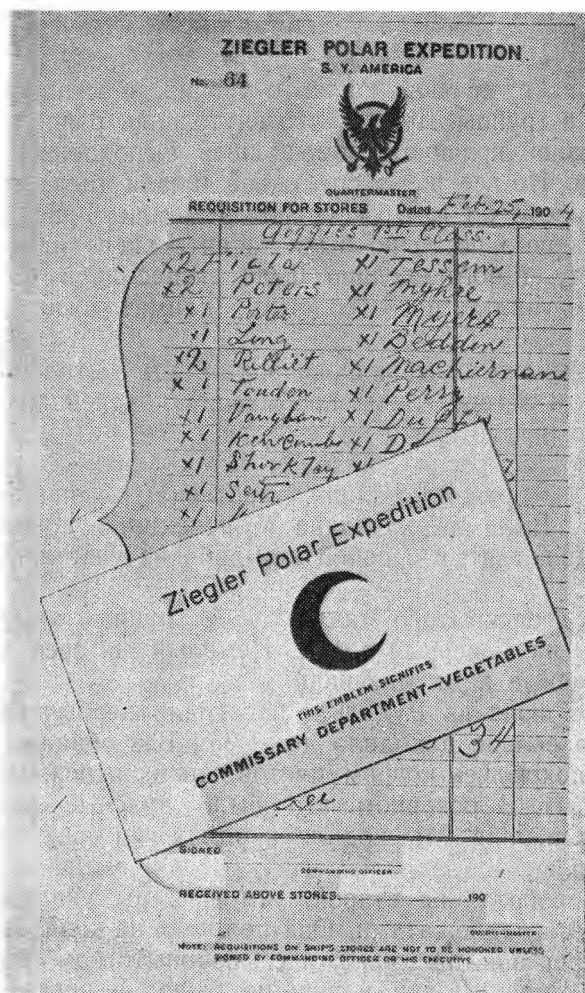 ZIEGLER POLAR EXPEDITION
S. Y. AMERICA
No. 64
QUARTERMASTER
REQUISITION FOR STORES Dated Feb. 25, 1904
1st. Class.
x2 Fiala x1 Tessem
x2 Peters x1 Myhre
x1 Porter x1 Myers
x1 Long x1 Beddow
x2 Rilliet x1 Mackiernan
x1 Toudon x1 Perry
x1 Vaughan x1 Duffy
x1 Newcombe x1
x1 Shorkley x1
x1 Seitz
x1
Ziegler Polar Expedition
THIS EMBLEM SIGNIFIES
COMMISSARY DEPARTMENT—VEGETABLES
34
SIGNED
COMMANDING OFFICER
RECEIVED ABOVE STORES 190
QUARTERMASTER
NOTE: REQUISITIONS ON SHIP'S STORES ARE NOT TO BE HONORED UNLESS
SIGNED BY COMMANDING OFFICER OR HIS EXECUTIVE.